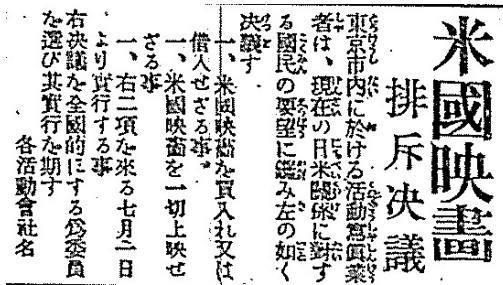 米國映畫
排斥決議
東京市内に於ける活動寫眞業
者は、現在の日米關係に對す
る國民の要望に鑑み左の如く
決議す
一、米國映畫を買入れ又は
借入せざる事
一、米國映畫を一切上映せ
ざる事
一、右二項を來る七月一日
より實行する事
右決議を全國的にする爲委員
を選び其實行を期す
各活動會社名